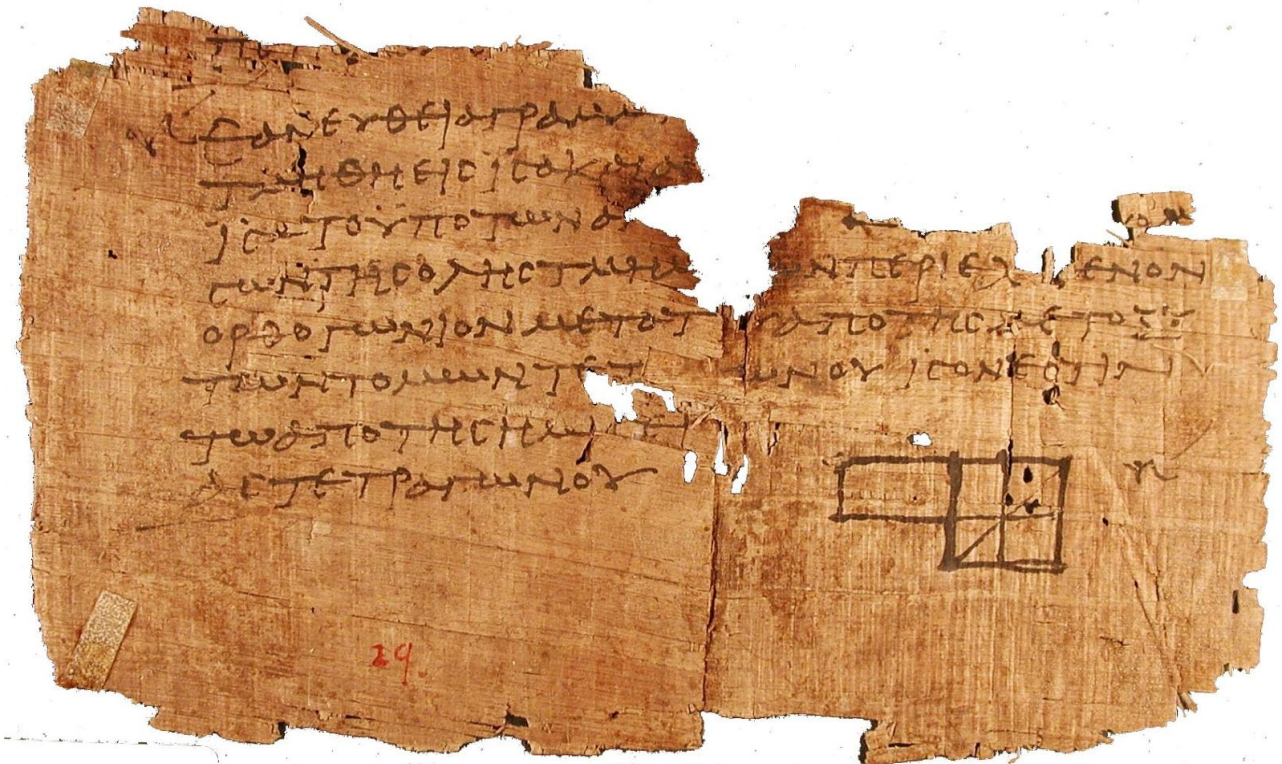 ΕΑΝ ΕΥΘΕΙΑ ΓΡΑΜΜ
ΤΜΗΘΗ ΕΙϹ ΙϹΑ ΚΑΙ ΑΝ
ΙϹΑ ΤΟ ΥΠΟ ΤΩΝ ΑΝ
ϹΩΝ ΤΗϹ ΟΛΗϹ ΤΜΗΜ ΩΝ ΠΕΡΙΕΧ ΜΕΝΟΝ
ΟΡΘΟΓΩΝΙΟΝ ΜΕΤΑ Τ ΑΠΟ ΤΗϹ ΜΕΤΑΞΥ
ΤΩΝ ΤΟΜΩΝ ΤΕΤ ΓΩΝΟΥ ΙϹΟΝ ΕϹΤΙΝ
ΤΩ ΑΠΟ ΤΗϹ ΗΜΙ
ΑϹ ΤΕΤΡΑΓΩΝΟΥ
29.